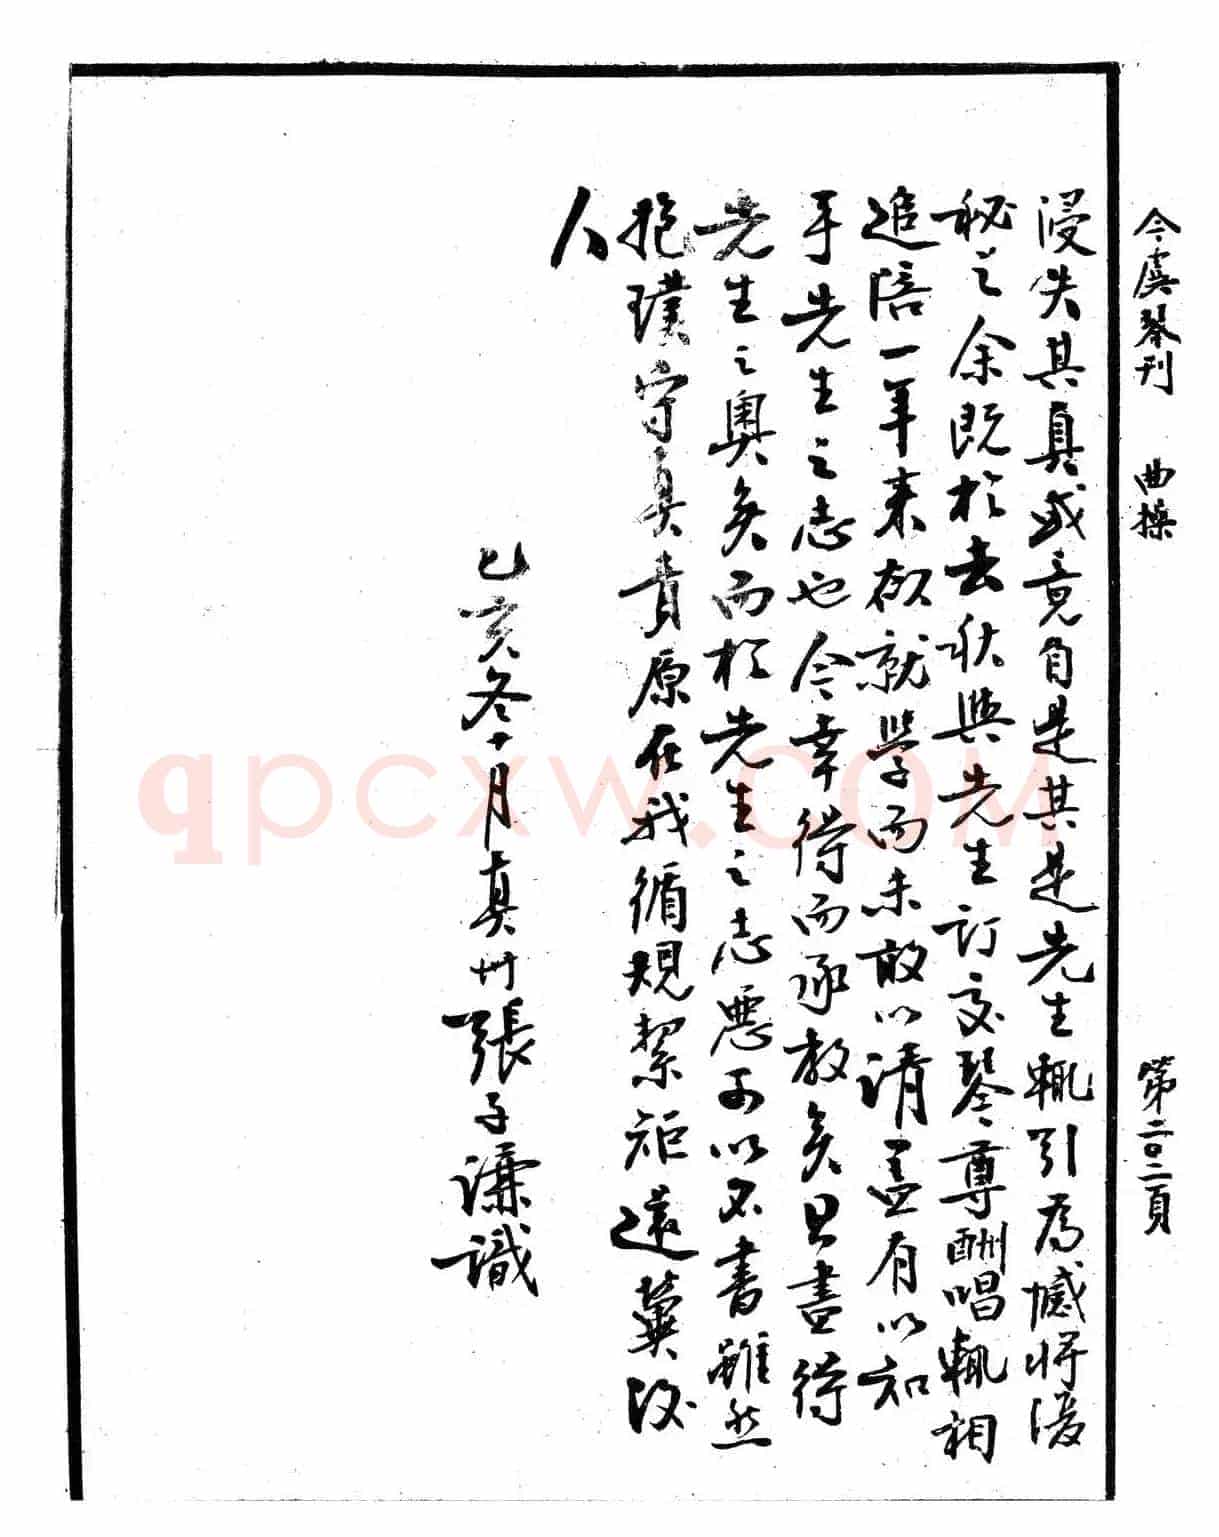 今虞琴刊 曲操 第二〇二頁
浸失其真或竟自是其是先生輒引為憾將復
秘之余既於去秋與先生訂交琴尊酬唱輒相
追陪一年來欲就學而未敢以請蓋有以知
乎先生之志也今幸得而承教矣且盡得
先生之奥矣而於先生之志惡可以不書雖然
抱璞守真責原在我循規絜矩還冀後
人
乙亥冬十月真州張子謙識
qpcxw.com